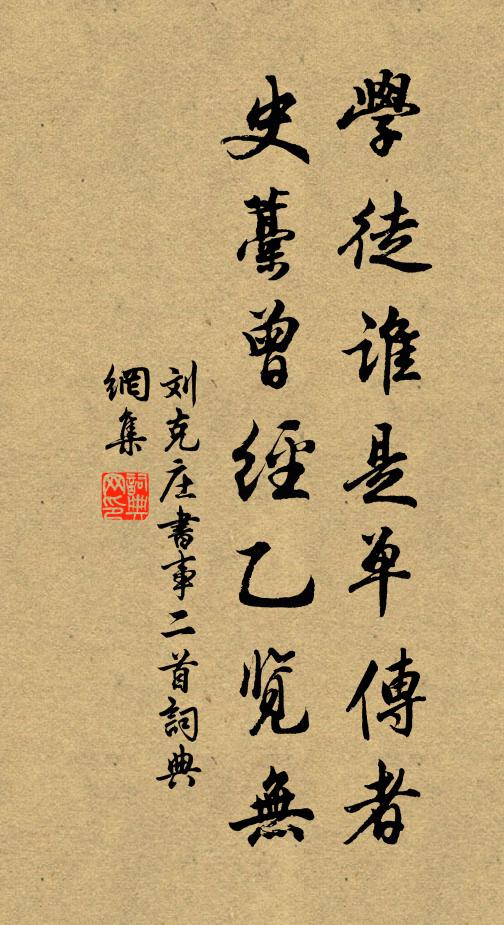 學徒誰是单傳者
史藁曾經乙览無
刘克庄書事二首詞典
網集
詞典
网印